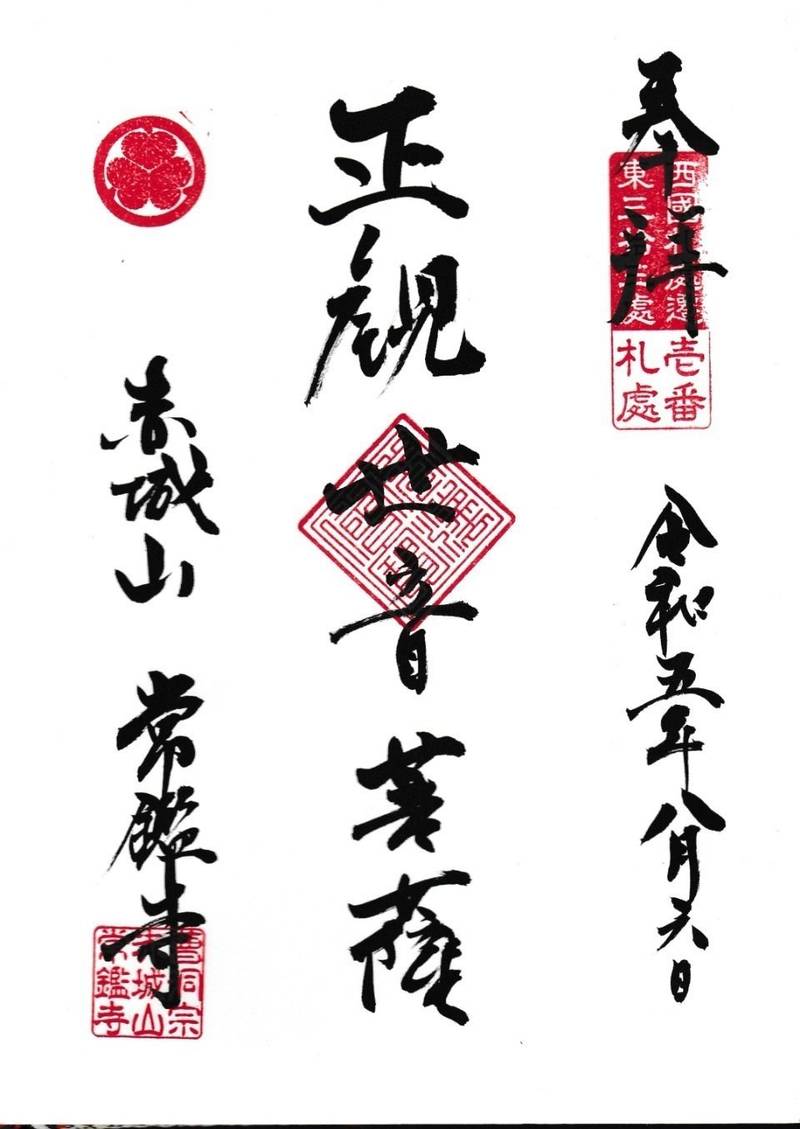 奉拝
東三拾三處
壱番
札處
令和五年八月六日
正観世音菩薩
赤城山 常鑑寺
曹洞宗
赤城山
常鑑寺